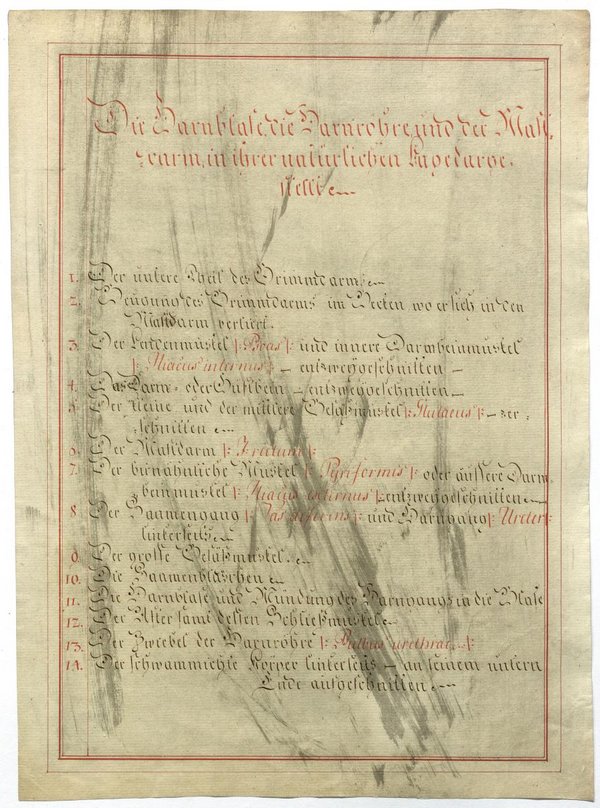 Die Harnblase, die Harnröhre, und der Mast,
darm, in ihrer natürlichen Lage darge,
stellt
1. Der untere Theil des Grimmdarms
2. Beugung des Grimmdarms im Becken wo er sich in den
Mastdarm verliert.
3. Der Lendenmuskel |: Psoas :| und innere Darmbeinmuskel
|: Iliacus internus :| — entzweygeschnitten —
4. Das Darm- oder Hüftbein — entzweygeschnitten —
5. Der kleine und der mittlere Gesäßmuskel |: Glutaeus :| — zer-
schnitten
6. Der Mastdarm |: Rectum :|
7. Der birnähnliche Muskel |: Pyriformis :| oder äussere Darm,
beinmuskel |: Iliacus externus :| entzweygeschnitten —
8. Der Saamengang |: Vas deferens :| und Harngang |: Ureter :|
linkerseits
9. Der große Gesäßmuskel.
10. Die Saamenbläschen
11. Die Harnblase und Mündung des Harngangs in die Blase
12. Der After samt dessen Schließmuskel
13. Der Zwiebel der Harnröhre |: Bulbus urethrae :|
14. Der schwammichte Körper linkerseits — an seinem untern
Ende aufgeschnitten.